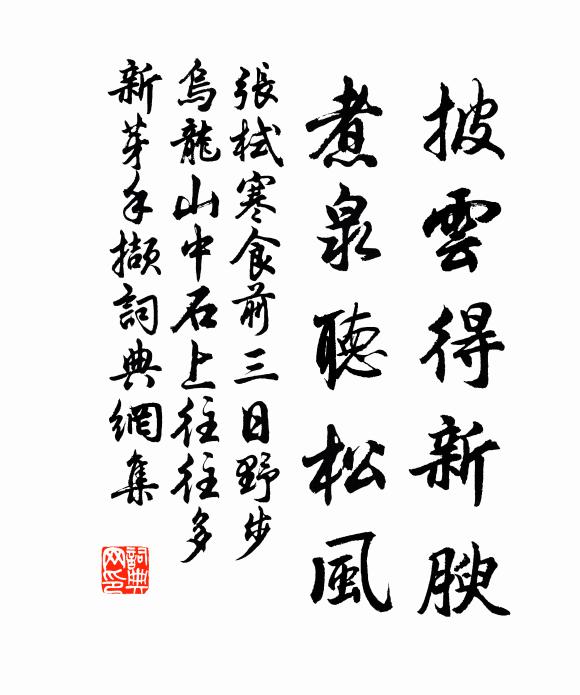 披雲得新腴
煮泉聽松風
張栻寒食前三日野步
烏龍山中石上往往多
新芽手擷詞典網集
詞典網印